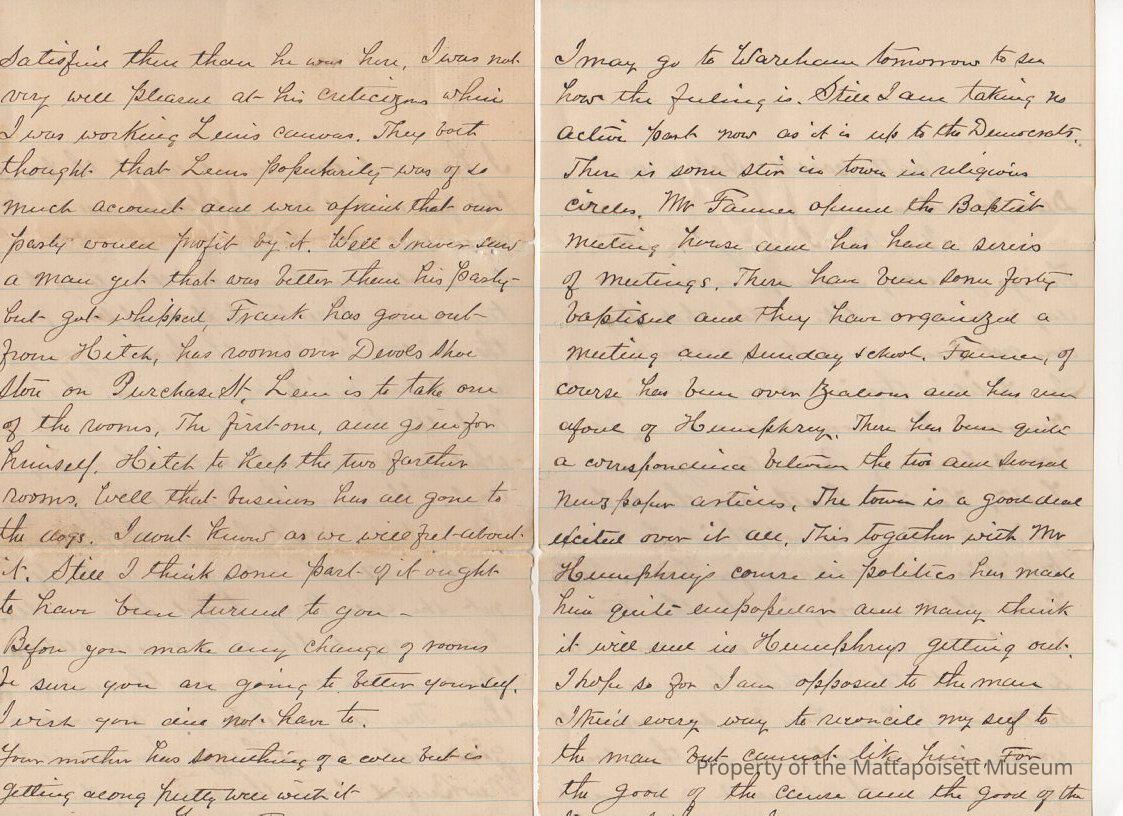 Satisfied then than he was here, I was not
very well pleased at his criticizms when
I was working Lems canvas. They both
thought that Lems popularity was of so
much account and were afraid that our
party would profit by it. Well I never saw
a man yet that was better than his party
but got whipped, Frank has gone out
from Hitch, has rooms over Devols shoe
store on Purchase St, Lem is to take one
of the rooms, The first one, and go in for
himself. Hitch to keep the two farther
rooms. Well that business has all gone to
the dogs. I dont know as we will fret about
it. Still I think some part of it ought
to have been turned to you -
Before you make any change of rooms
be sure you are going to better yourself.
I wish you did not have to.
Your mother has something of a cold but is
getting along pretty well with it
I may go to Wareham tomorrow to see
how the feeling is. Still I am taking no
active part now as it is up to the Democrats.
There is some stir in town in religious
circles. Mr Fanner opened the Baptist
meeting house and has had a series
of meetings. There have been some forty
baptised and they have organized a
meeting and sunday school. Fanner, of
course has been over Zealous and has run
afoul of Humphrey. There has been quite
a correspondence between the two and several
news paper articles. The town is a good deal
excited over it all. This together with Mr
Humphreys course in politics has made
him quite unpopular and many think
it will end in Humphreys getting out.
I hope so for I am opposed to the man
I tried every way to reconcile my self to
the man but cannot like him. For
the good of the cause and the good of the
Property of the Mattapoisett Museum